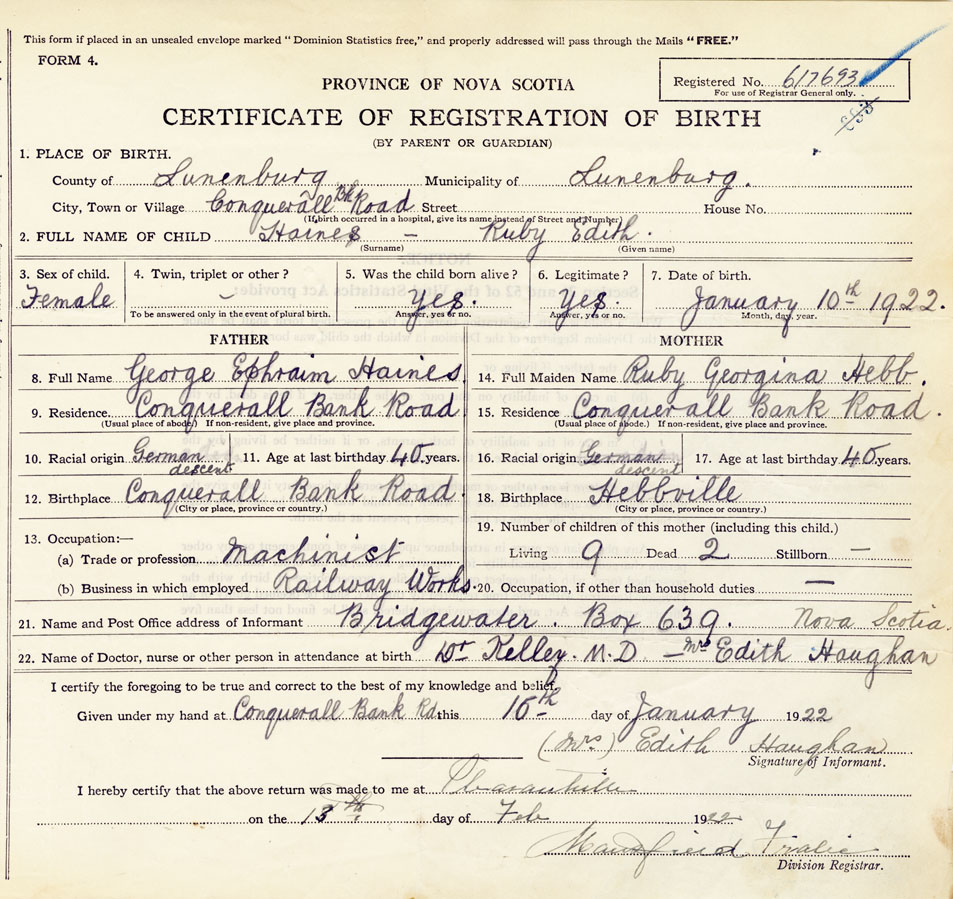 This form if placed in an unsealed envelope marked "Dominion Statistics free," and properly addressed will pass through the Mails "FREE."
FORM 4.
Registered No. 617693
For use of Registrar General only.
PROVINCE OF NOVA SCOTIA
CERTIFICATE OF REGISTRATION OF BIRTH
(BY PARENT OR GUARDIAN)
1. PLACE OF BIRTH.
County of Lunenburg Municipality of Lunenburg.
City, Town or Village Conquerall Bk Road Street House No.
(If birth occurred in a hospital, give its name instead of Street and Number)
2. FULL NAME OF CHILD Haines - Ruby Edith.
(Surname) (Given name)
3. Sex of child. 4. Twin, triplet or other? 5. Was the child born alive? 6. Legitimate? 7. Date of birth.
Female - Yes. Yes. January 10th 1922.
To be answered only in the event of plural birth. Answer, yes or no. Answer, yes or no. Month, day, year.
FATHER MOTHER
8. Full Name George Ephraim Haines 14. Full Maiden Name Ruby Georgina Hebb.
9. Residence. Conquerall Bank Road 15. Residence Conquerall Bank Road.
(Usual place of abode.) If non-resident, give place and province. (Usual place of abode.) If non-resident, give place and province.
10. Racial origin German descent 11. Age at last birthday 40 years. 16. Racial origin German descent 17. Age at last birthday 40 years.
12. Birthplace Conquerall Bank Road 18. Birthplace Hebbville
(City or place, province or country.) (City or place, province or country.)
13. Occupation:— 19. Number of children of this mother (including this child.)
(a) Trade or profession Machinist Living 9 Dead 2 Stillborn —
(b) Business in which employed Railway Works. 20. Occupation, if other than household duties —
21. Name and Post Office address of Informant Bridgewater. Box 639. Nova Scotia.
22. Name of Doctor, nurse or other person in attendance at birth Dr Kelley. M.D — Mrs Edith Haughan
I certify the foregoing to be true and correct to the best of my knowledge and belief.
Given under my hand at Conquerall Bank Rd. this 16th day of January 1922
(Mrs) Edith Haughan
Signature of Informant.
I hereby certify that the above return was made to me at Pleasantville
on the 13th day of Feb 1922
Fralic
Division Registrar.